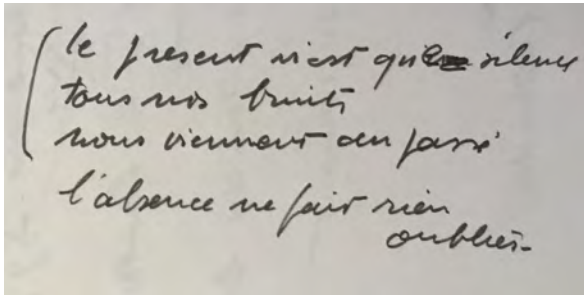 le present n'est que silence
tous nos bruits
nous viennent du passé
l'absence ne fait rien
oublier.